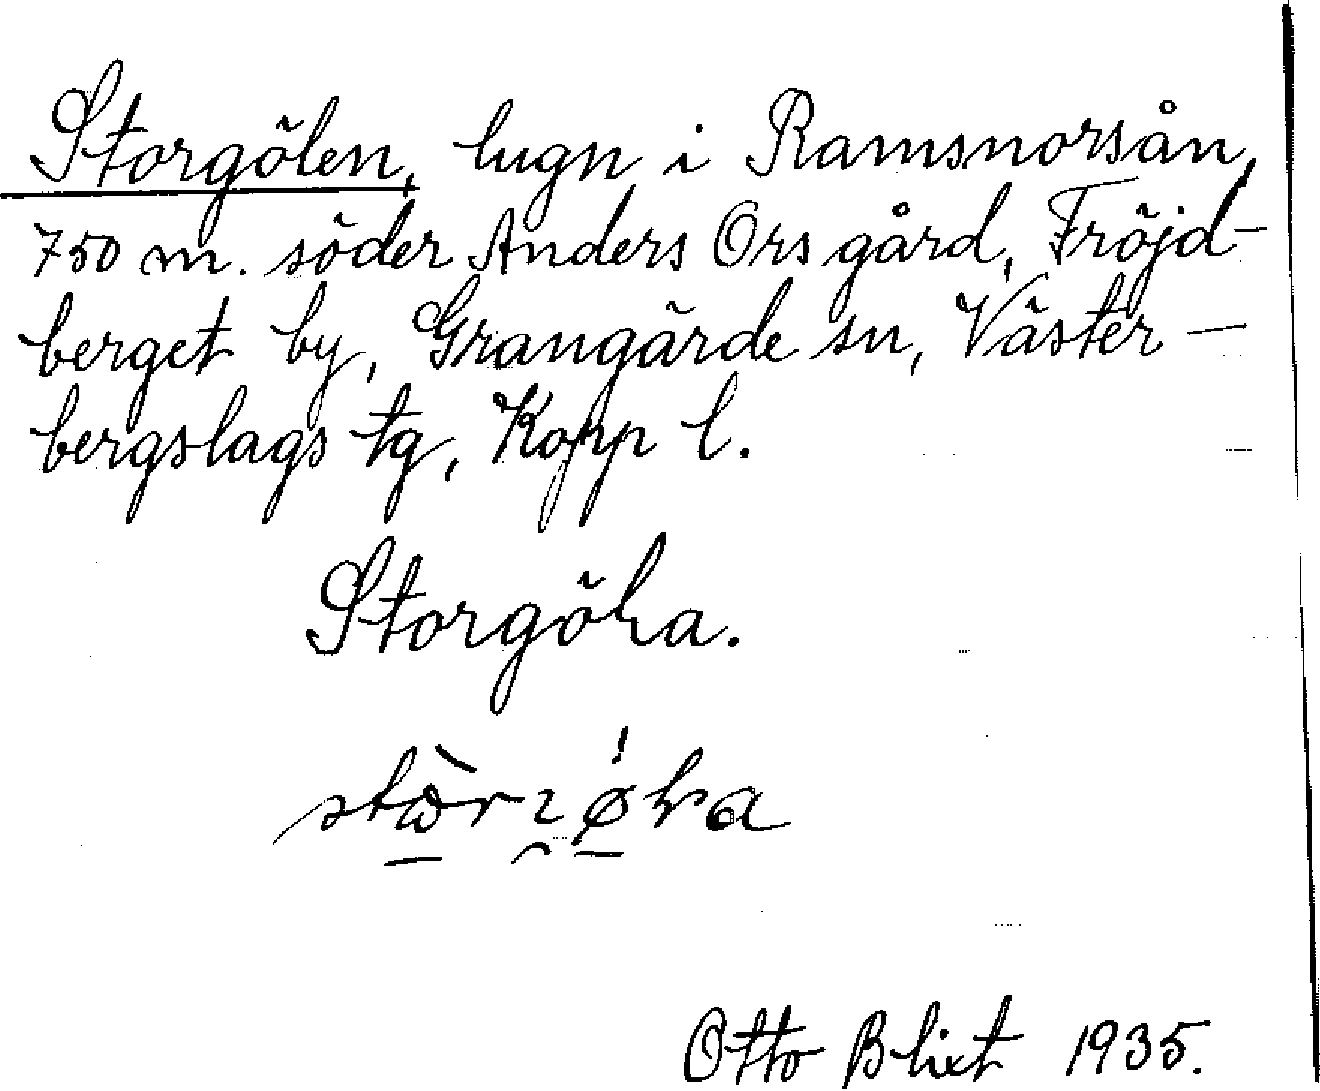 Storgölen, lugn i Ramsnorsån,
750 m. söder Anders Ors gård, Fröjd-
berget by, Grangärde sn, Väster-
bergslags tg, Kopp l.
Storgöła.
Otto Blixt 1935.